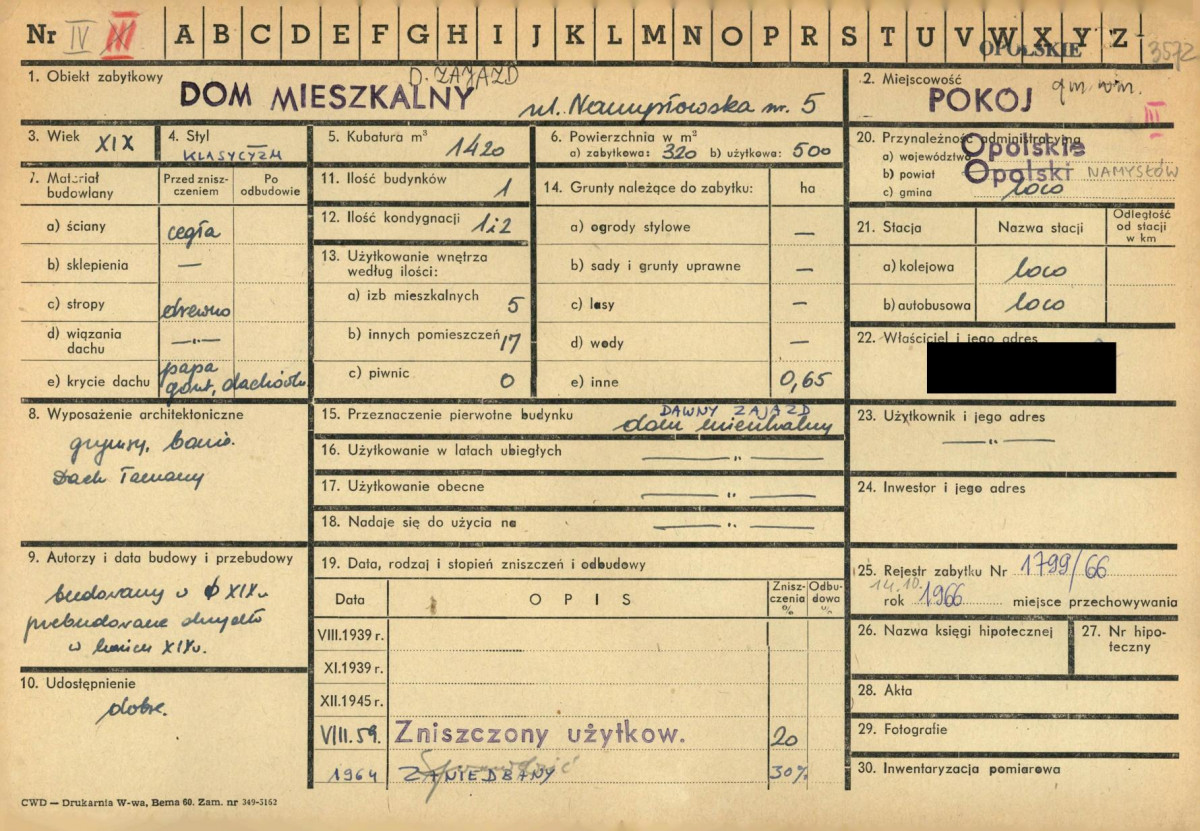 Nr IV III A B C D E F G H I J K L M N O P R S T U V W X Y Z
OPOLSKIE 3572
1. Obiekt zabytkowy D. ZAJAZD
DOM MIESZKALNY ul. Namysłowska nr. 5
2. Miejscowość
POKÓJ gm. wm.
III
3. Wiek XIX
4. Styl
KLASYCYZM
5. Kubatura m³
1420
6. Powierzchnia w m²
a) zabytkowa: 320 b) użytkowa: 500
20. Przynależność administracyjna
a) województwo Opolskie
b) powiat Opolski NAMYSŁÓW
c) gmina loco
7. Materiał budowlany
Przed zniszczeniem
Po odbudowie
a) ściany cegła
b) sklepienia —
c) stropy drewno
d) wiązania dachu —„—
e) krycie dachu papa
gont, dachówka
11. Ilość budynków 1
12. Ilość kondygnacji 1 i 2
13. Użytkowanie wnętrza według ilości:
a) izb mieszkalnych 5
b) innych pomieszczeń 17
c) piwnic 0
14. Grunty należące do zabytku: ha
a) ogrody stylowe —
b) sady i grunty uprawne —
c) lasy —
d) wody —
e) inne 0,65
21. Stacja
Nazwa stacji
Odległość od stacji w km
a) kolejowa loco
b) autobusowa loco
22. Właściciel i jego adres
8. Wyposażenie architektoniczne
gzymsy, bonie.
Dach łamany
15. Przeznaczenie pierwotne budynku DAWNY ZAJAZD
dom mieszkalny
16. Użytkowanie w latach ubiegłych —„—
17. Użytkowanie obecne —„—
18. Nadaje się do użycia na —„—
23. Użytkownik i jego adres
—„—
24. Inwestor i jego adres
9. Autorzy i data budowy i przebudowy
budowany w XIX w
przebudowane
w końcu XIX w.
10. Udostępnienie
dobre.
19. Data, rodzaj i stopień zniszczeń i odbudowy
Data OPIS Zniszczenia % Odbudowa %
VIII.1939 r.
XI.1939 r.
XII.1945 r.
VIII.59. Zniszczony użytkow. 20
Sprawdzić
1964 ZANIEDBANY 30%
25. Rejestr zabytku Nr 1799/66
14.10.
rok 1966 miejsce przechowywania
26. Nazwa księgi hipotecznej
27. Nr hipoteczny
28. Akta
29. Fotografie
30. Inwentaryzacja pomiarowa
CWD — Drukarnia W-wa, Bema 60. Zam. nr 349-5162